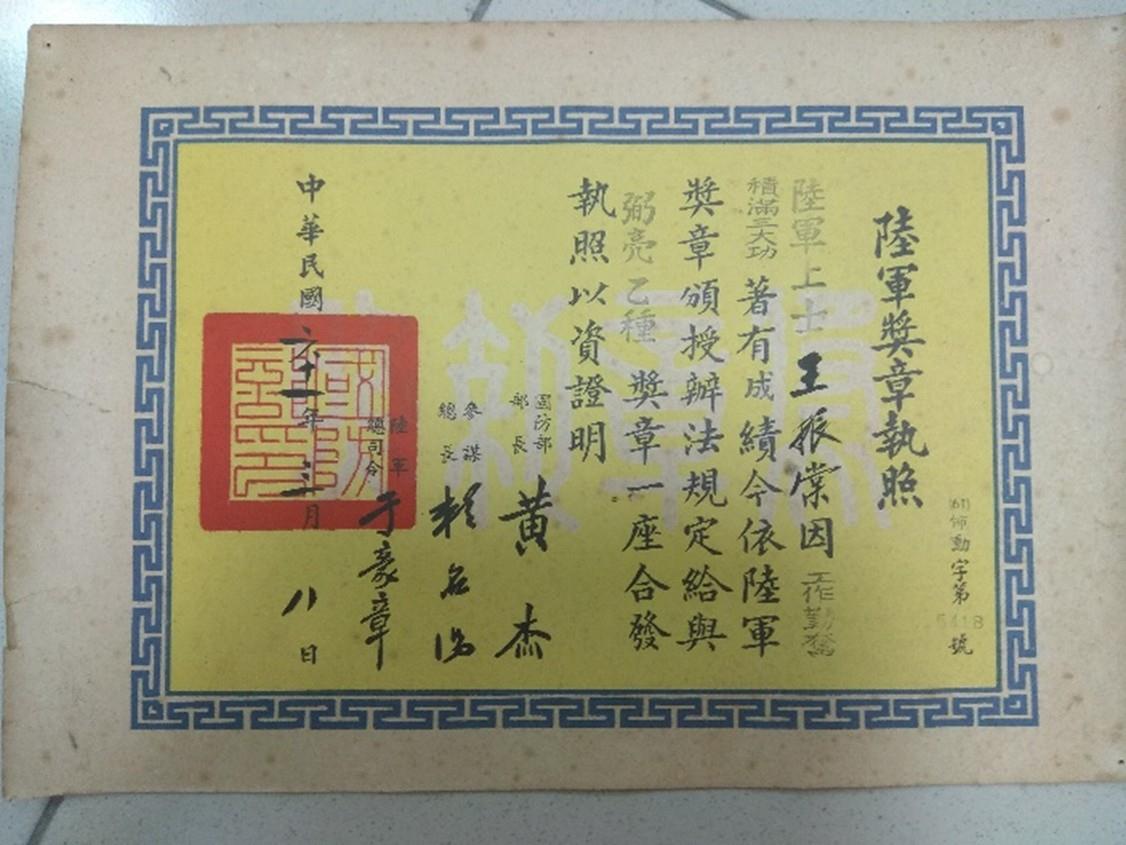 陸軍獎章執照
(61)佈勳字第5418號
陸軍上士王振棠因工作勤奮
積滿三大功著有成績今依陸軍
獎章頒授辦法規定給與
弼亮乙種獎章一座合發
執照以資證明
國防部
部長 黃杰
參謀
總長 賴名湯
陸軍
總司令 于豪章
中華民國六十一年三月八日